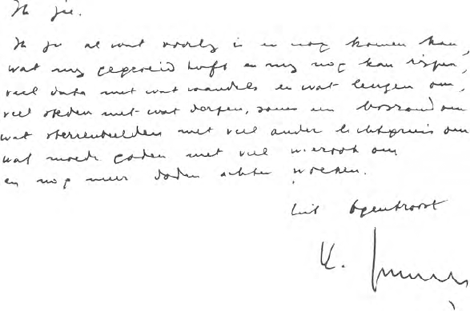 Ik zie.
Ik zie al wat voorbij is en nog komen kan,
wat mij gegroeid heeft en mij nog kan rijpen,
veel data met wat wandels en wat leugen om,
veel steden met wat dorpen, soms een bosrand om
wat sterrenbeelden met veel ander lichtgruis om
wat moede goden met veel wierook om
en nog meer doden achter
Uit Ogentroost